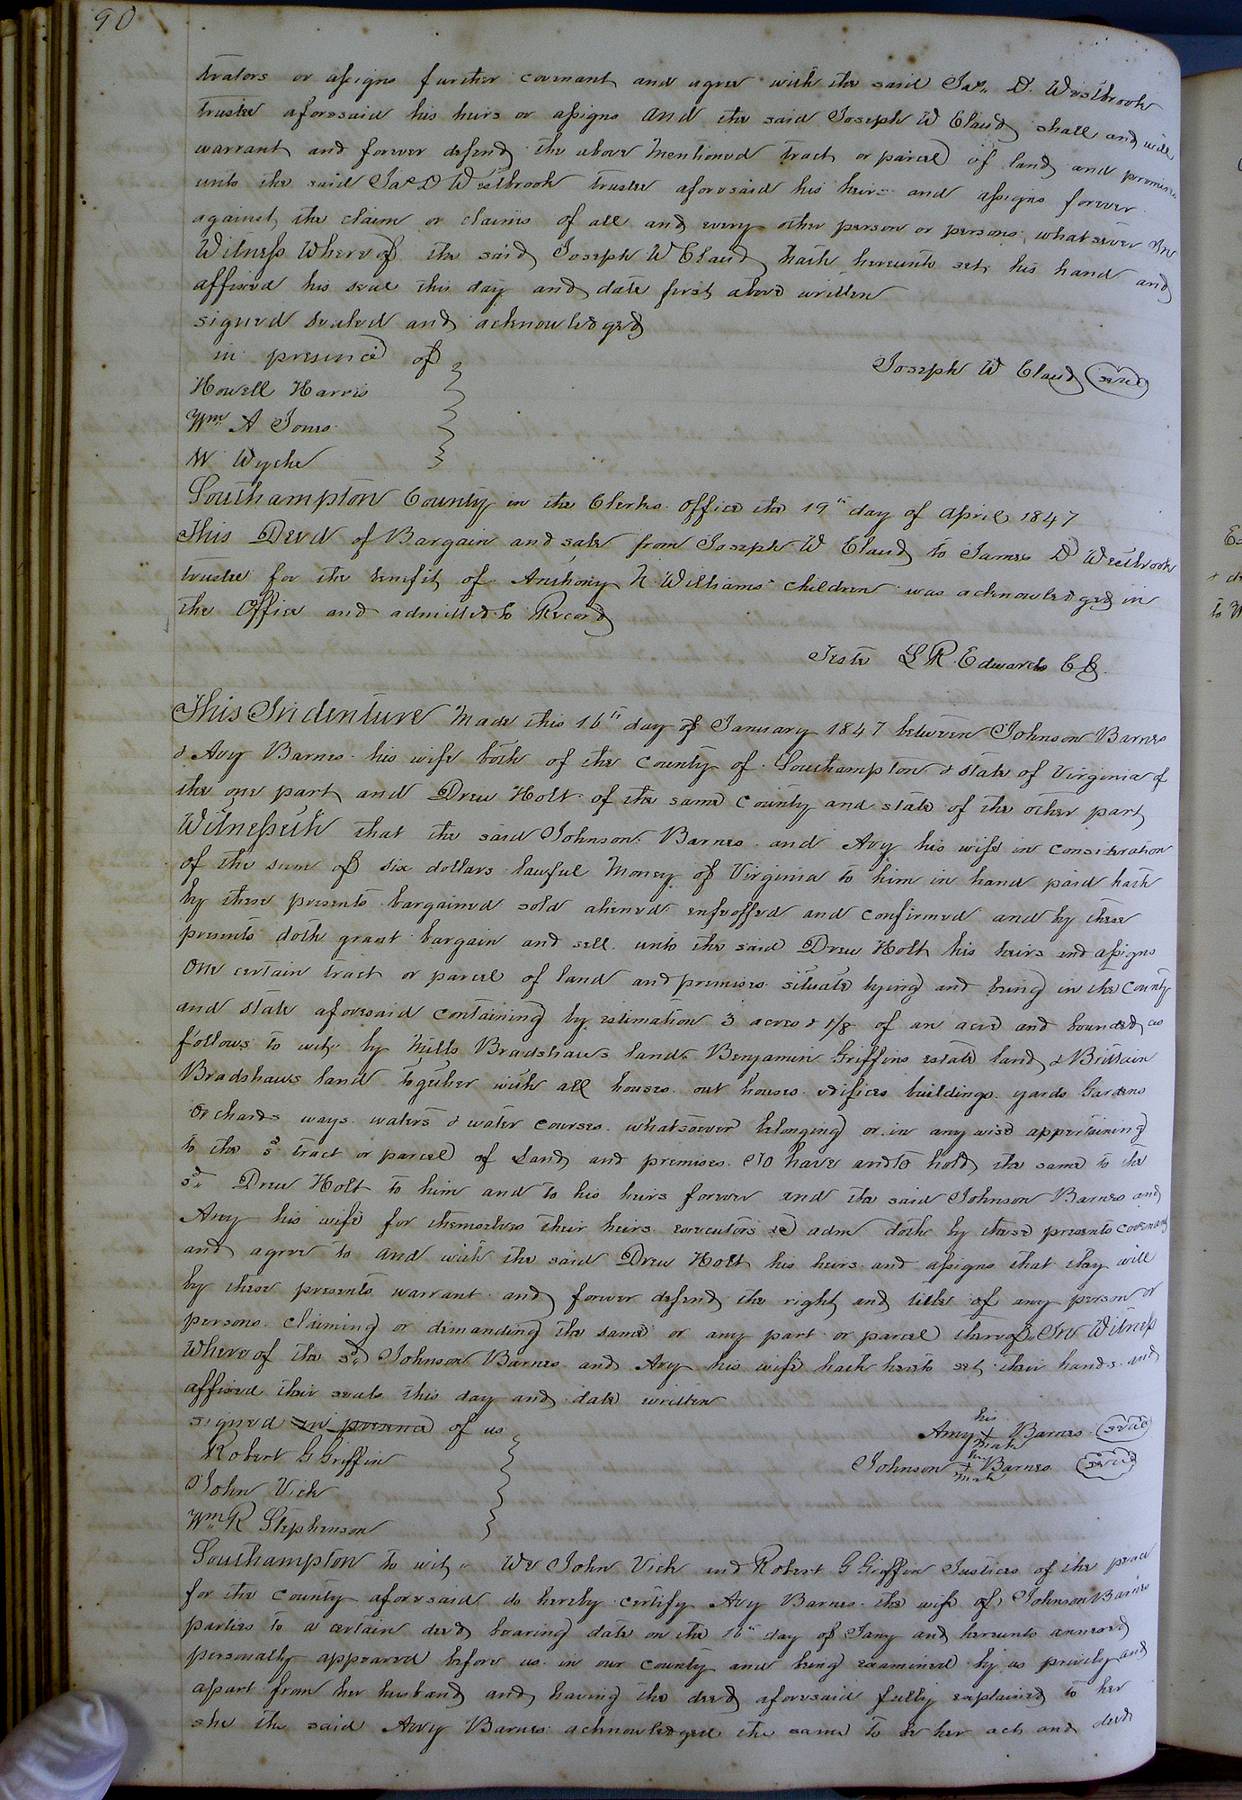 90
trators or assigns further covenant and agree with the said Jas. D. Westbrook
trustee aforesaid his heirs or assigns and the said Joseph W Claud shall and will
warrant and forever defend the above mentioned tract or parcel of land and premises
unto the said Jas D Westbrook trustee aforesaid his heirs and assigns forever
against the claim or claims of all and every other person or persons whatsoever In
Witness Whereof the said Joseph W Claud hath hereunto set his hand and
affixed his seal this day and date first above written
signed sealed and acknowledged
in presence of
Joseph W Claud (seal)
Howell Harris
Wm A Jones
W Wyche
Southampton County in the Clerks office the 19th day of April 1847
This Deed of Bargain and sale from Joseph W Claud to James D Westbrook
trustee for the benefit of Anthony N Williams children was acknowledged in
the Office and admitted to Record
Teste L R Edwards C C
This Indenture Made this 16th day of January 1847 between Johnson Barnes
& Avy Barnes his wife both of the County of Southampton & state of Virginia of
the one part and Drew Holt of the same County and state of the other part
Witnesseth that the said Johnson Barnes and Avy his wife in consideration
of the sum of six dollars lawful Money of Virginia to him in hand paid hath
by these presents bargained sold aliened enfeoffed and confirmed and by these
presents doth grant bargain and sell unto the said Drew Holt his heirs and assigns
One certain tract or parcel of land and premises situate lying and being in the County
and state aforesaid containing by estimation 3 acres & 1/8 of an acre and bounded as
follows to wit by Mills Bradshaws land Benjamin Griffins estate land & Brittain
Bradshaws land together with all houses out houses edifices buildings yards Gardens
Orchards ways waters & water courses whatsoever belonging or in any wise appertaining
to the sd tract or parcel of Land and premises To have and to hold the same to the
sd Drew Holt to him and to his heirs forever and the said Johnson Barnes and
Avy his wife for themselves their heirs executors & adm doth by these presents covenant
and agree to and with the said Drew Holt his heirs and assigns that they will
by these presents warrant and forever defend the right and title of any person or
persons claiming or demanding the same or any part or parcel thereof In Witness
Whereof the sd Johnson Barnes and Avy his wife hath hereto set their hands and
affixed their seals this day and date written
signed in presence of us
Avy his X mark Barnes (seal)
Robert G Griffin
Johnson his X mark Barnes (seal)
John Vick
Wm R Stephenson
Southampton to wit. We John Vick and Robert G Griffin Justices of the peace
for the County aforesaid do hereby certify Avy Barnes the wife of Johnson Barnes
parties to a certain deed bearing date on the 16th day of Jany and hereunto annexed
personally appeared before us in our County and being examined by us privily and
apart from her husband and having the deed aforesaid fully explained to her
she the said Avy Barnes acknowledged the same to be her act and deed